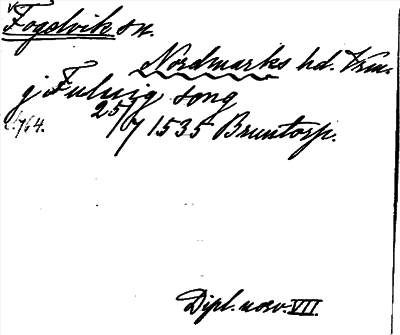 v. Fogelvik sn.
Nordmarks hd. Vrm.
j Fulvig song
s. 764. 25/7 1535 Bruntorp.
Dipl. norv. VII.